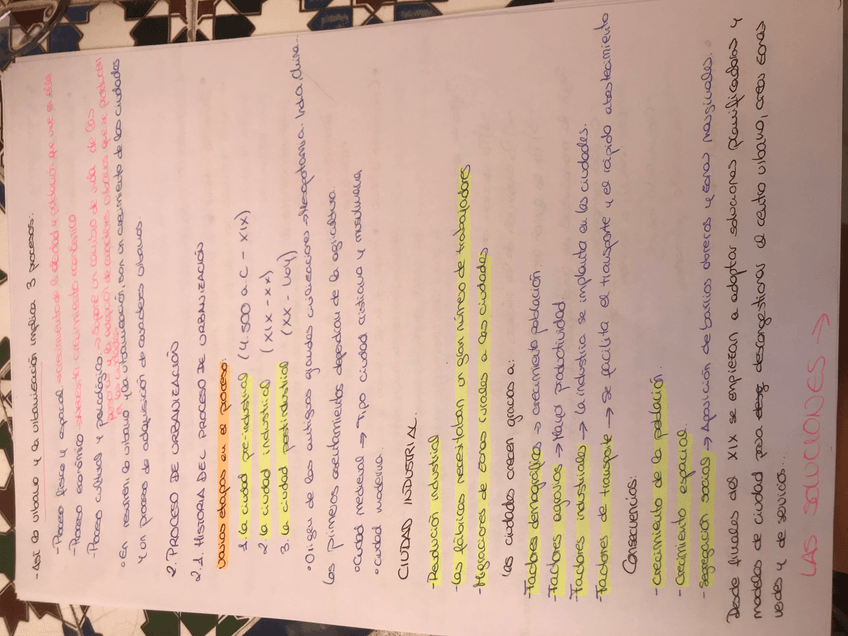 - Así lo urbano y la urbanización implica 3 procesos:
- Proceso físico y espacial → incremento de la ciudad y
- Proceso económico → crecimiento económico
- Proceso cultural y psicológico → Supone un cambio de vida de las
° En resumen lo urbano y la urbanización, son un crecimiento de las ciudades
y un proceso de adquisición de caracteres urbanos.
2. PROCESO DE URBANIZACIÓN
2.1. HISTORIA DEL PROCESO DE URBANIZACIÓN
Varias etapas en el proceso:
1. La ciudad pre-industrial (4.500 a.C - XIX)
2. La ciudad industrial (XIX - XX)
3. La ciudad postindustrial (XX - Hoy)
° Origen de las antiguas grandes civilizaciones → Mesopotamia, India, China.
Los primeros asentamientos dependían de la agricultura.
° Ciudad medieval → Tipo ciudad cristiana y musulmana
° Ciudad moderna.
CIUDAD INDUSTRIAL.
- Revolución industrial
- Las fábricas necesitaban un gran número de trabajadores
- Migraciones de zonas rurales a las ciudades
Las ciudades crecen gracias a:
- Factores demográficos → crecimiento población
- Factores agrarios → Mayor productividad
- Factores industriales → la industria se implanta en las ciudades.
- Factores de transporte → se facilita el transporte y el rápido abastecimiento
Consecuencias:
- Crecimiento de la población.
- Crecimiento espacial.
- Segregación social → Aparición de barrios obreros y zonas marginales.
Desde finales del XIX se empiezan a adoptar soluciones planificadas y
modelos de ciudad para descongestionar el centro urbano, crear zonas
verdes y de servicios...
LAS SOLUCIONES →